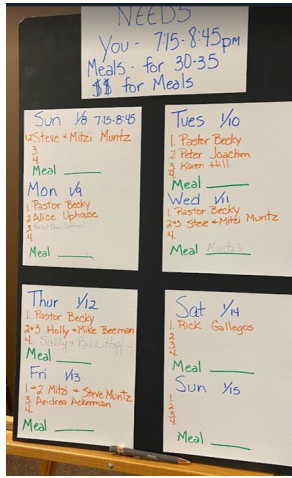 NEEDS
You - 7:15-8:45pm
Meals - for 30-35
$$ for Meals
Sun 1/8 7:15-8:45
1,2 Steve + Mitzi Muntz
3.
4.
Meal
Mon 1/9
1. Pastor Becky
2 Alice Uphouse
3
4.
Meal
Tues 1/10
1. Pastor Becky
2 Peter Joachim
3 Karen Hill
4
Meal
Wed 1/11
1. Pastor Becky
2+3 Steve + Mitzi Muntz
4.
Meal Muntz's
Thur 1/12
1. Pastor Becky
2+3 Holly + Mike Beeman
4. Sally
Meal
Fri 1/13
1+2 Mitzi + Steve Muntz
3. Andrea Ackerman
4.
Meal
Sat 1/14
1. Rick Gallegos
2
3.
4.
Meal
Sun 1/15
1.
2
3.
4.
Meal